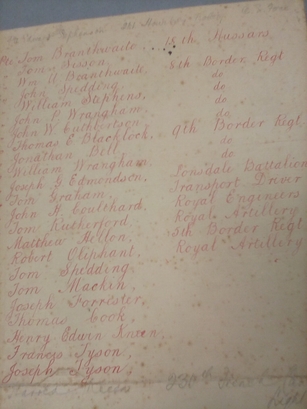 Pte. Tom Branthwaite 18th Hussars
Tomy Sisson, 8th Border Regt
Wm H Branthwaite, do
John Spedding, do
William Stephens, do
John P. Wrangham, do
John W. Cuthbertson,
Thomas E Blacklock, 9th Border Regt
Jonathan Bell, do
William Wrangham, do
Joseph G Edmondson, Lonsdale Battalion
Tom Graham, Transport Driver
John H. Coulthard, Royal Engineers
Tom Rutherford, Royal Artillery
Matthew Fellon, 5th Border Regt
Robert Oliphant, Royal Artillery
Tom Spedding
Tom Mackin,
Joseph Forrester,
Thomas Cook,
Henry Edwin Kneen,
Francis Tyson,
Joseph Tyson,